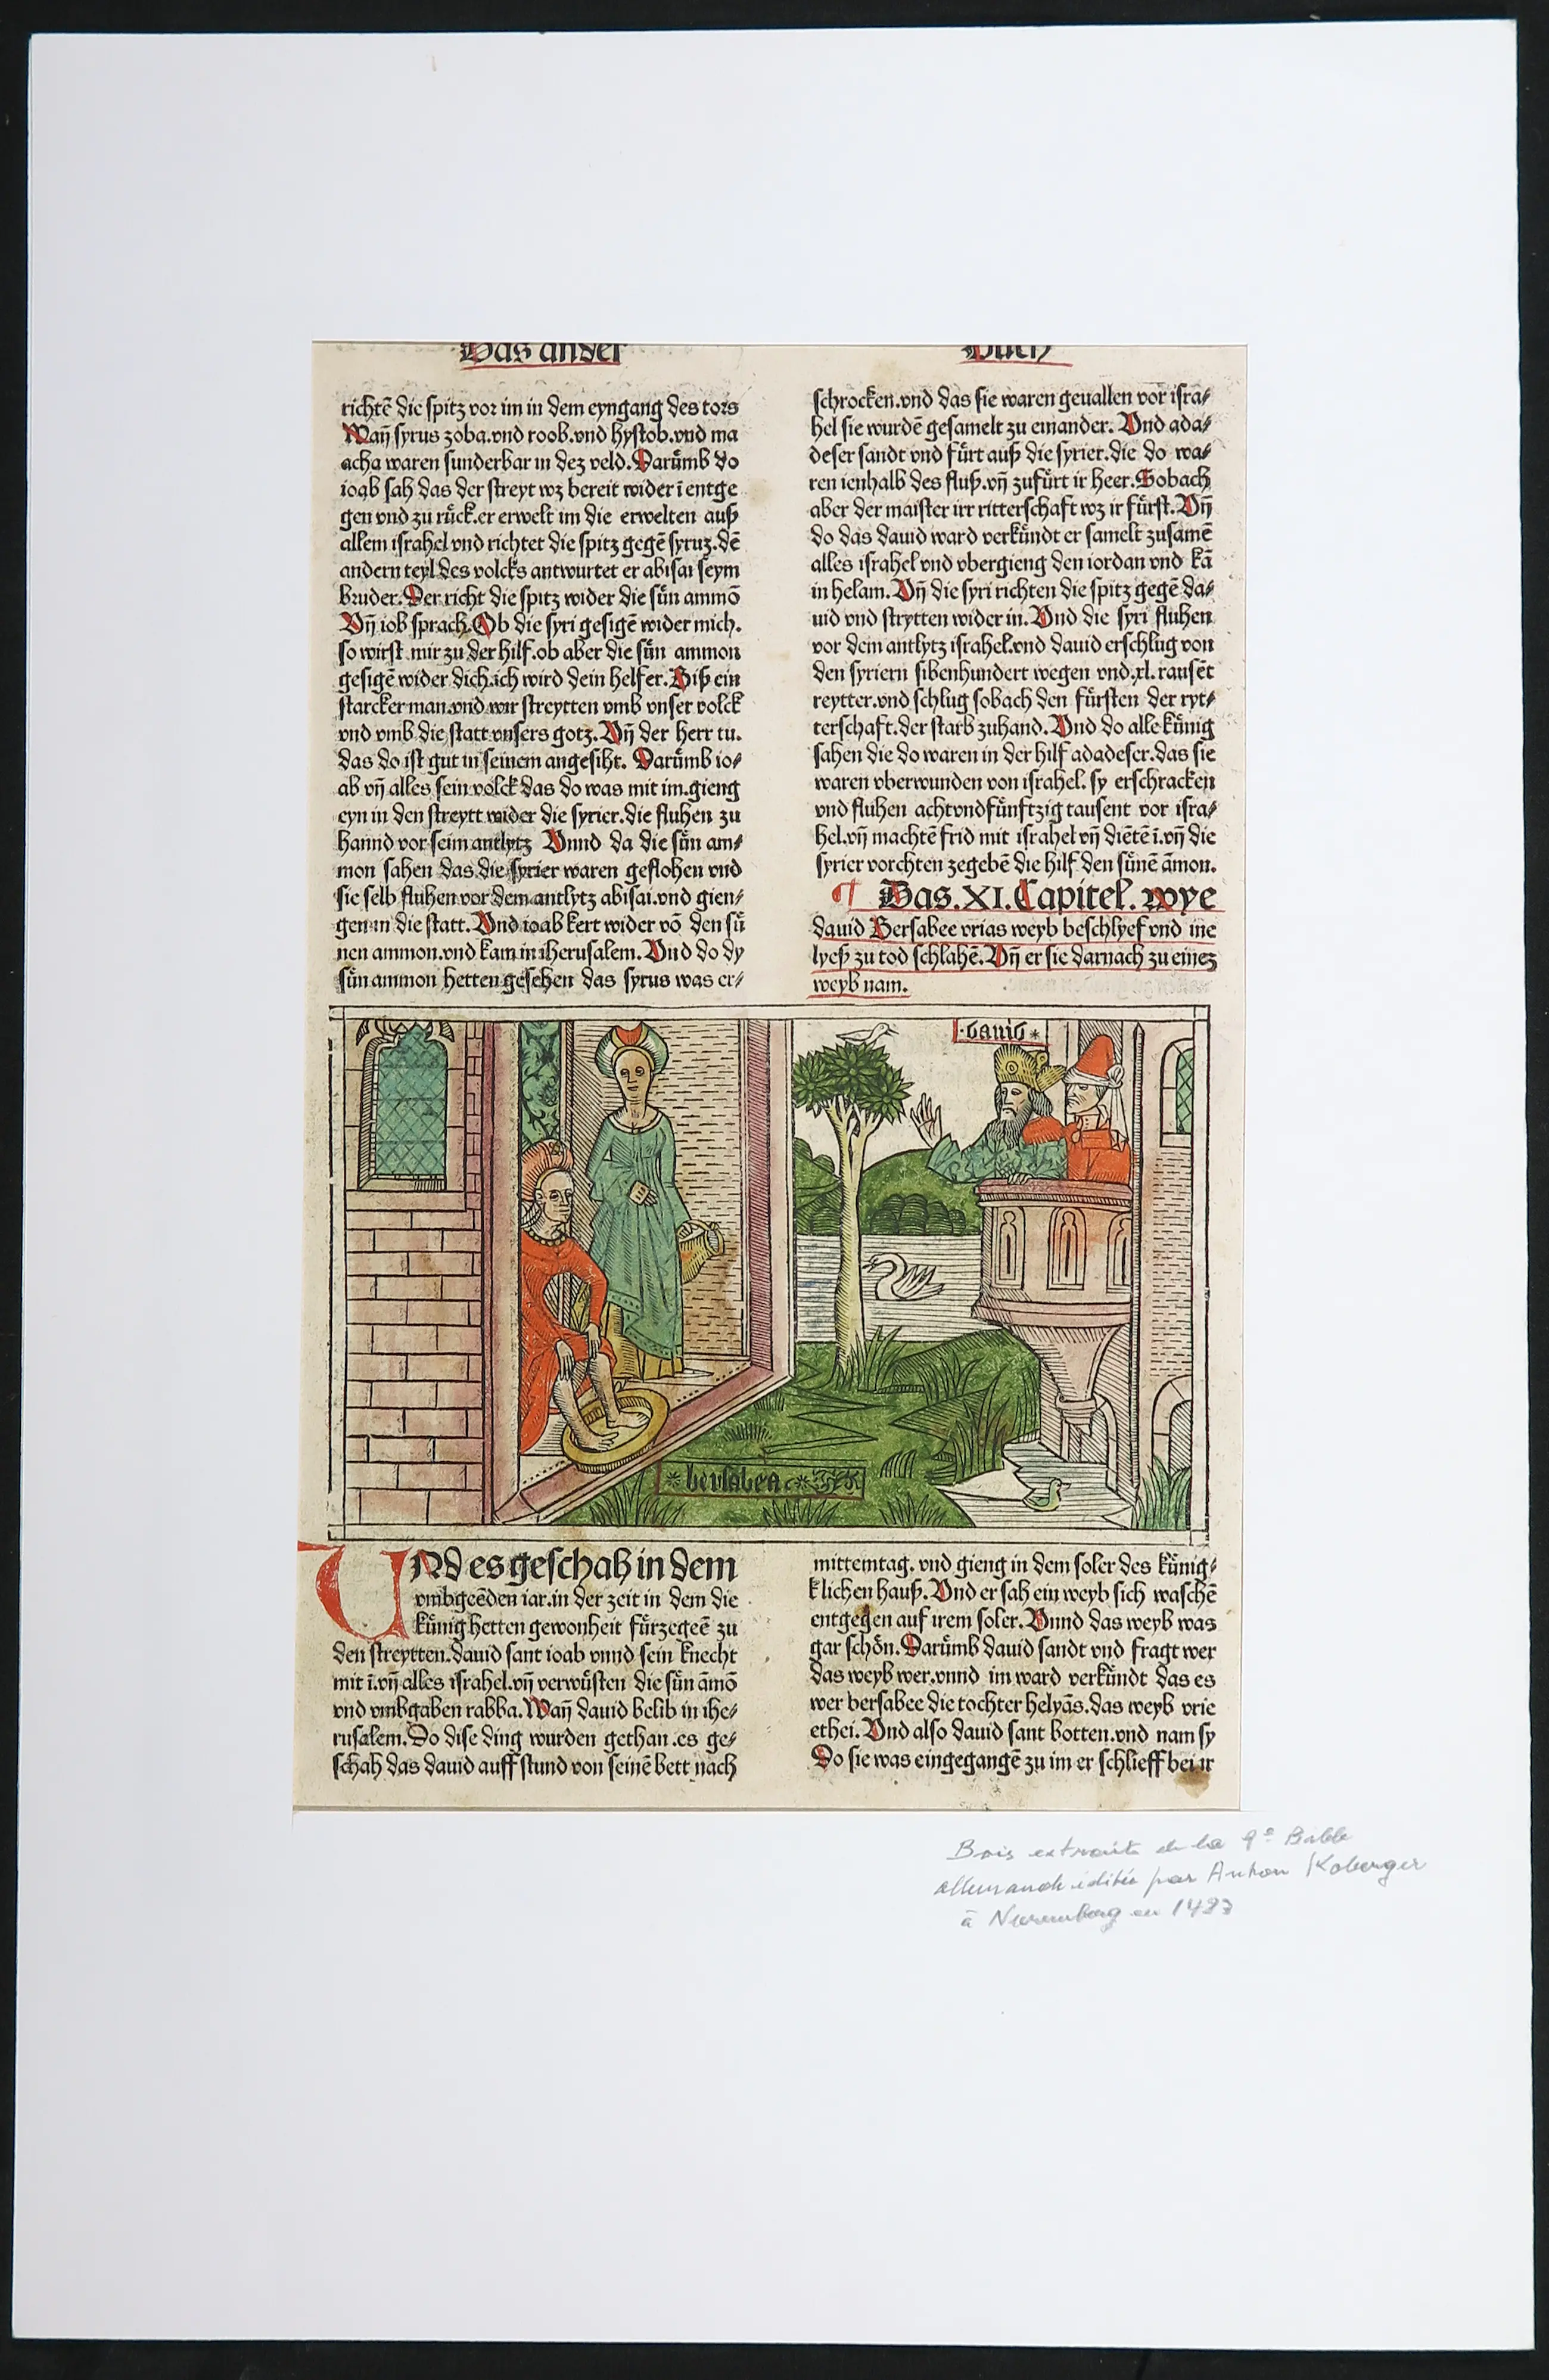 Das ander
Buch
richtẽ die spitz vor im in dem eyngang des tors
Wañ syrus zoba.vnd roob.vnd hystob.vnd ma
acha waren sunderbar in dez veld.Darůmb do
ioab sah das der streyt wz bereit wider ĩ entge
gen vnd zu růck.er erwelt im die erwelten auß
allem israhel vnd richtet die spitz gegẽ syruz.dẽ
andern teyl des volcks antwurtet er abisai seym
bruder.Der richt die spitz wider die sůn ammõ
Vñ iob sprach.Ob die syri gesigẽ wider mich.
so wirst mir zu der hilf.ob aber die sůn ammon
gesigẽ wider dich.ich wird dein helfer.Biß ein
starcker man.vnd wir streytten vmb vnser volck
vnd vmb die statt vnsers gotz.Vñ der herr tu.
das do ist gut in seinem angesiht. Darůmb io⸗
ab vñ alles sein volck das do was mit im.gieng
eyn in den streytt wider die syrier.die fluhen zu
hannd vor seim antlytz Vnnd da die sůn am⸗
mon sahen das die syrier waren geflohen vnd
sie selb fluhen vor dem antlytz abisai.vnd gien⸗
gen in die statt.Vnd ioab kert wider võ den sů
nen ammon.vnd kam in iherusalem.Vnd do dy
sůn ammon hetten gesehen das syrus was er⸗
schrocken.vnd das sie waren geuallen vor isra⸗
hel sie wurdẽ gesamelt zu einander. Vnd ada⸗
deser sandt vnd fůrt auß die syrier.die do wa⸗
ren ienhalb des fluß.vñ zufůrt ir heer.Sobach
aber der maister irr ritterschaft wz ir fůrst.Vñ
do das dauid ward verkůndt er samelt zusamẽ
alles israhel vnd vbergieng den iordan vnd kã
in helam.Vñ die syri richten die spitz gegẽ da⸗
uid vnd strytten wider in.Vnd die syri fluhen
vor dem antlytz israhel.vnd dauid erschlug von
den syriern sibenhundert wegen vnd.xl.tausẽt
reytter.vnd schlug sobach den fůrsten der ryt⸗
terschaft.der starb zuhand.Vnd do alle kůnig
sahen die do waren in der hilf adadeser.das sie
waren vberwunden von israhel. sy erschracken
vnd fluhen achtvndfůnftzig tausent vor isra⸗
hel.vñ machtẽ frid mit israhel vñ diẽtẽ ĩ.vñ die
syrier vorchten zegebẽ die hilf den sůnẽ ãmon.
¶ Das.XI.Capitel.wye
dauid Bersabee vrias weyb beschlyef vnd ine
lyeß zu tod schlahẽ.Vñ er sie darnach zu einez
weyb nam.
.dauid*
*bersabea
VNd es geschah in dem
vmbgeẽden iar.in der zeit in dem die
kůnig hetten gewonheit fůrzegeẽ zu
den streytten.dauid sant ioab vnnd sein knecht
mit ĩ.vñ alles israhel.vñ verwůsten die sůn ãmõ
vnd vmbgaben rabba.Wañ dauid belib in ihe⸗
rusalem.Do dise ding wurden gethan.es ge⸗
schah das dauid auff stund von seinẽ bett nach
mittemtag. vnd gieng in dem soler des kůnig⸗
klichen hauß.Vnd er sah ein weyb sich waschẽ
entgegen auf irem soler.Vnnd das weyb was
gar schön.Darůmb dauid sandt vnd fragt wer
das weyb wer.vnnd im ward verkůndt das es
wer bersabee die tochter helyãs.das weyb vrie
ethei.Vnd also dauid sant botten.vnd nam sy
Do sie was eingegangẽ zu im er schlieff bei ir
Bois extraits de la 9e Bible
allemande éditée par Anton Koberger
à Nuremberg en 1483